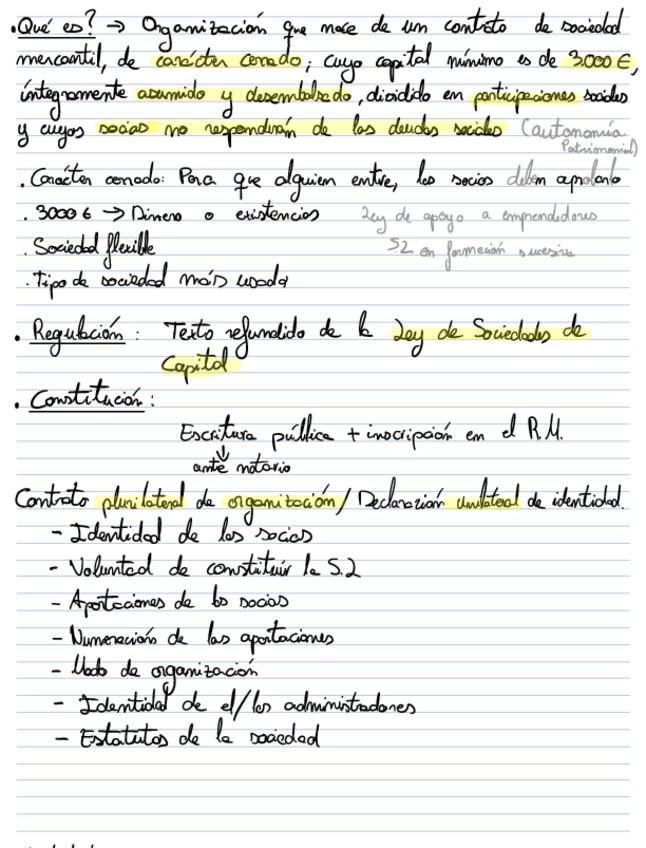 • Qué es? → Organización que nace de un contrato de sociedad
mercantil, de carácter cerrado, cuyo capital mínimo es de 3000 €,
íntegramente asumido y desembolsado, dividido en participaciones sociales
y cuyos socios no responderán de las deudas sociales (autonomía
Patrimonial)
. Carácter cerrado: Para que alguien entre, los socios deben aprobarlo
. 3000 € → Dinero o existencias Ley de apoyo a emprendedores
. Sociedad flexible S.L en formación sucesiva
. Tipo de sociedad más usada
• Regulación: Texto refundido de la Ley de Sociedades de
Capital
. Constitución:
Escritura pública + inscripción en el R.M.
↓
ante notario
Contrato plurilateral de organización / Declaración unilateral de identidad.
- Identidad de los socios
- Voluntad de constituir la S.L
- Aportaciones de los socios
- Numeración de las aportaciones
- Modo de organización
- Identidad de el/los administradores
- Estatutos de la sociedad